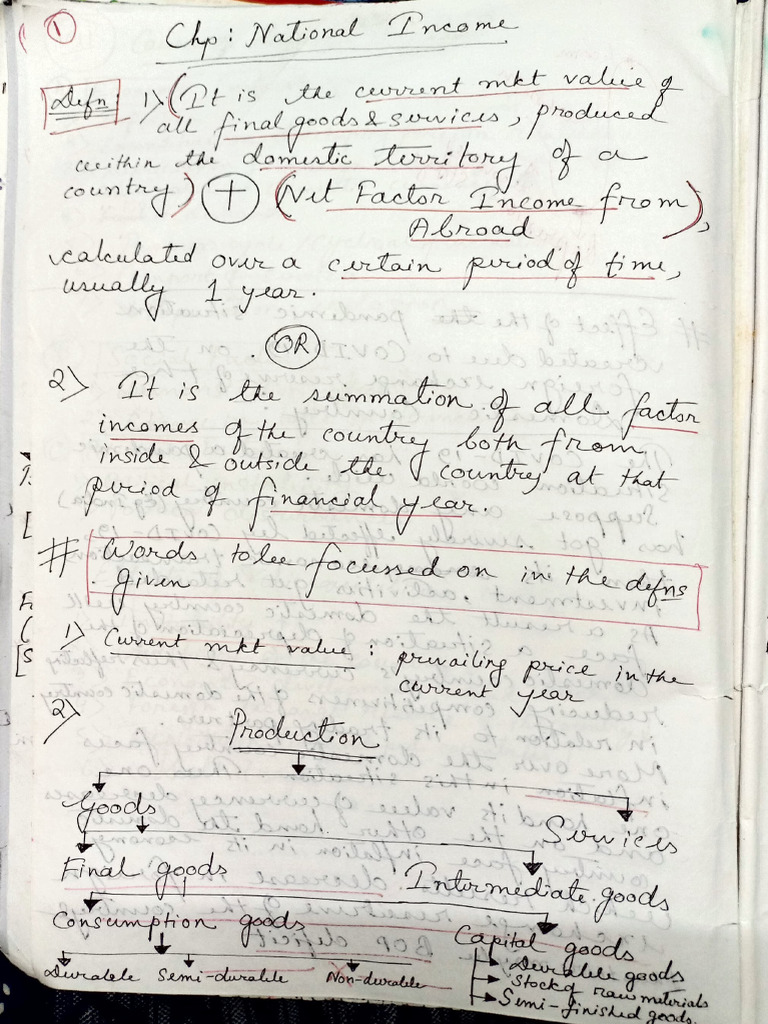 1
Chp: National Income
Defn 1) (It is the current mkt value of
all final goods & services, produced
within the domestic territory of a
country) + (Net Factor Income from
Abroad),
calculated over a certain period of time,
usually 1 year.
OR
2) It is the summation of all factor
incomes of the country both from
inside & outside the country at that
period of financial year.
# Words to be focussed on in the defns
given
1) Current mkt value : prevailing price in the
current year
2)
Production
Goods
Services
Final goods
Intermediate goods
Consumption goods
Capital goods
Durable Semi-durable Non-durable
Durable goods
Stock of raw materials
Semi-finished goods.